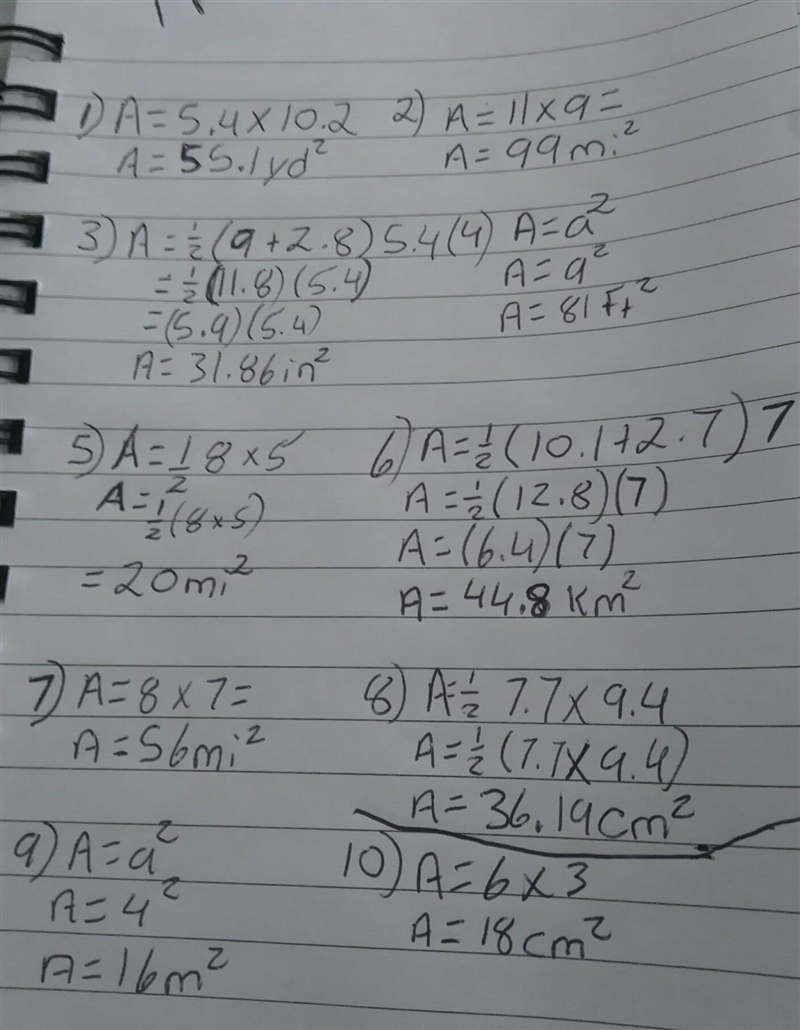 1) A = 5.4 × 10.2
A = 55.1 yd²
2) A = 11 × 9 =
A = 99 mi²
3) A = ½ (9 + 2.8) 5.4
= ½ (11.8) (5.4)
= (5.9) (5.4)
A = 31.86 in²
(4) A = a²
A = 9²
A = 81 Ft²
5) A = ½ 8 × 5
A = ½ (8 × 5)
= 20 mi²
6) A = ½ (10.1 + 2.7) 7
A = ½ (12.8) (7)
A = (6.4) (7)
A = 44.8 Km²
7) A = 8 × 7 =
A = 56 mi²
8) A = ½ 7.7 × 9.4
A = ½ (7.7 × 9.4)
A = 36.19 cm²
9) A = a²
A = 4²
A = 16 m²
10) A = 6 × 3
A = 18 cm²